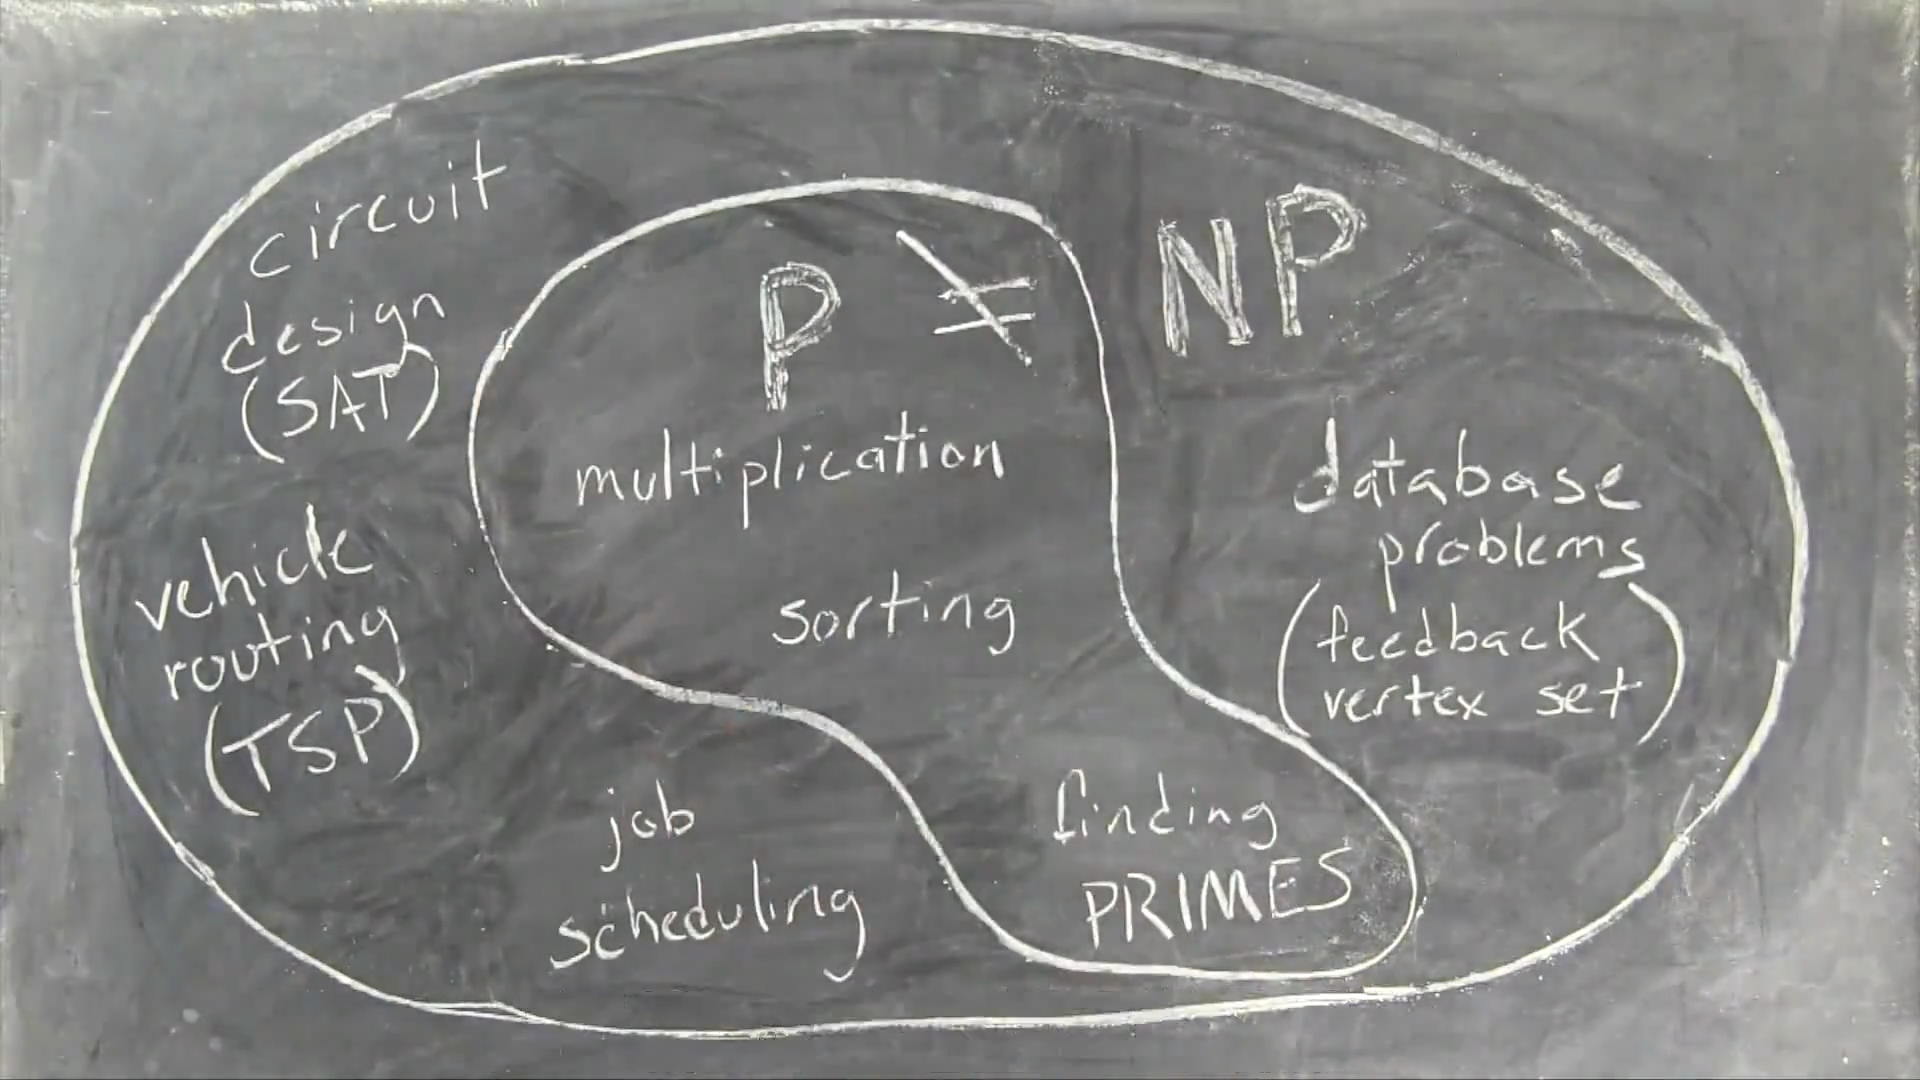 circuit
design
(SAT)
P ≠ NP
multiplication
sorting
vehicle
routing
(TSP)
database
problems
(feedback
vertex set)
job
scheduling
finding
PRIMES